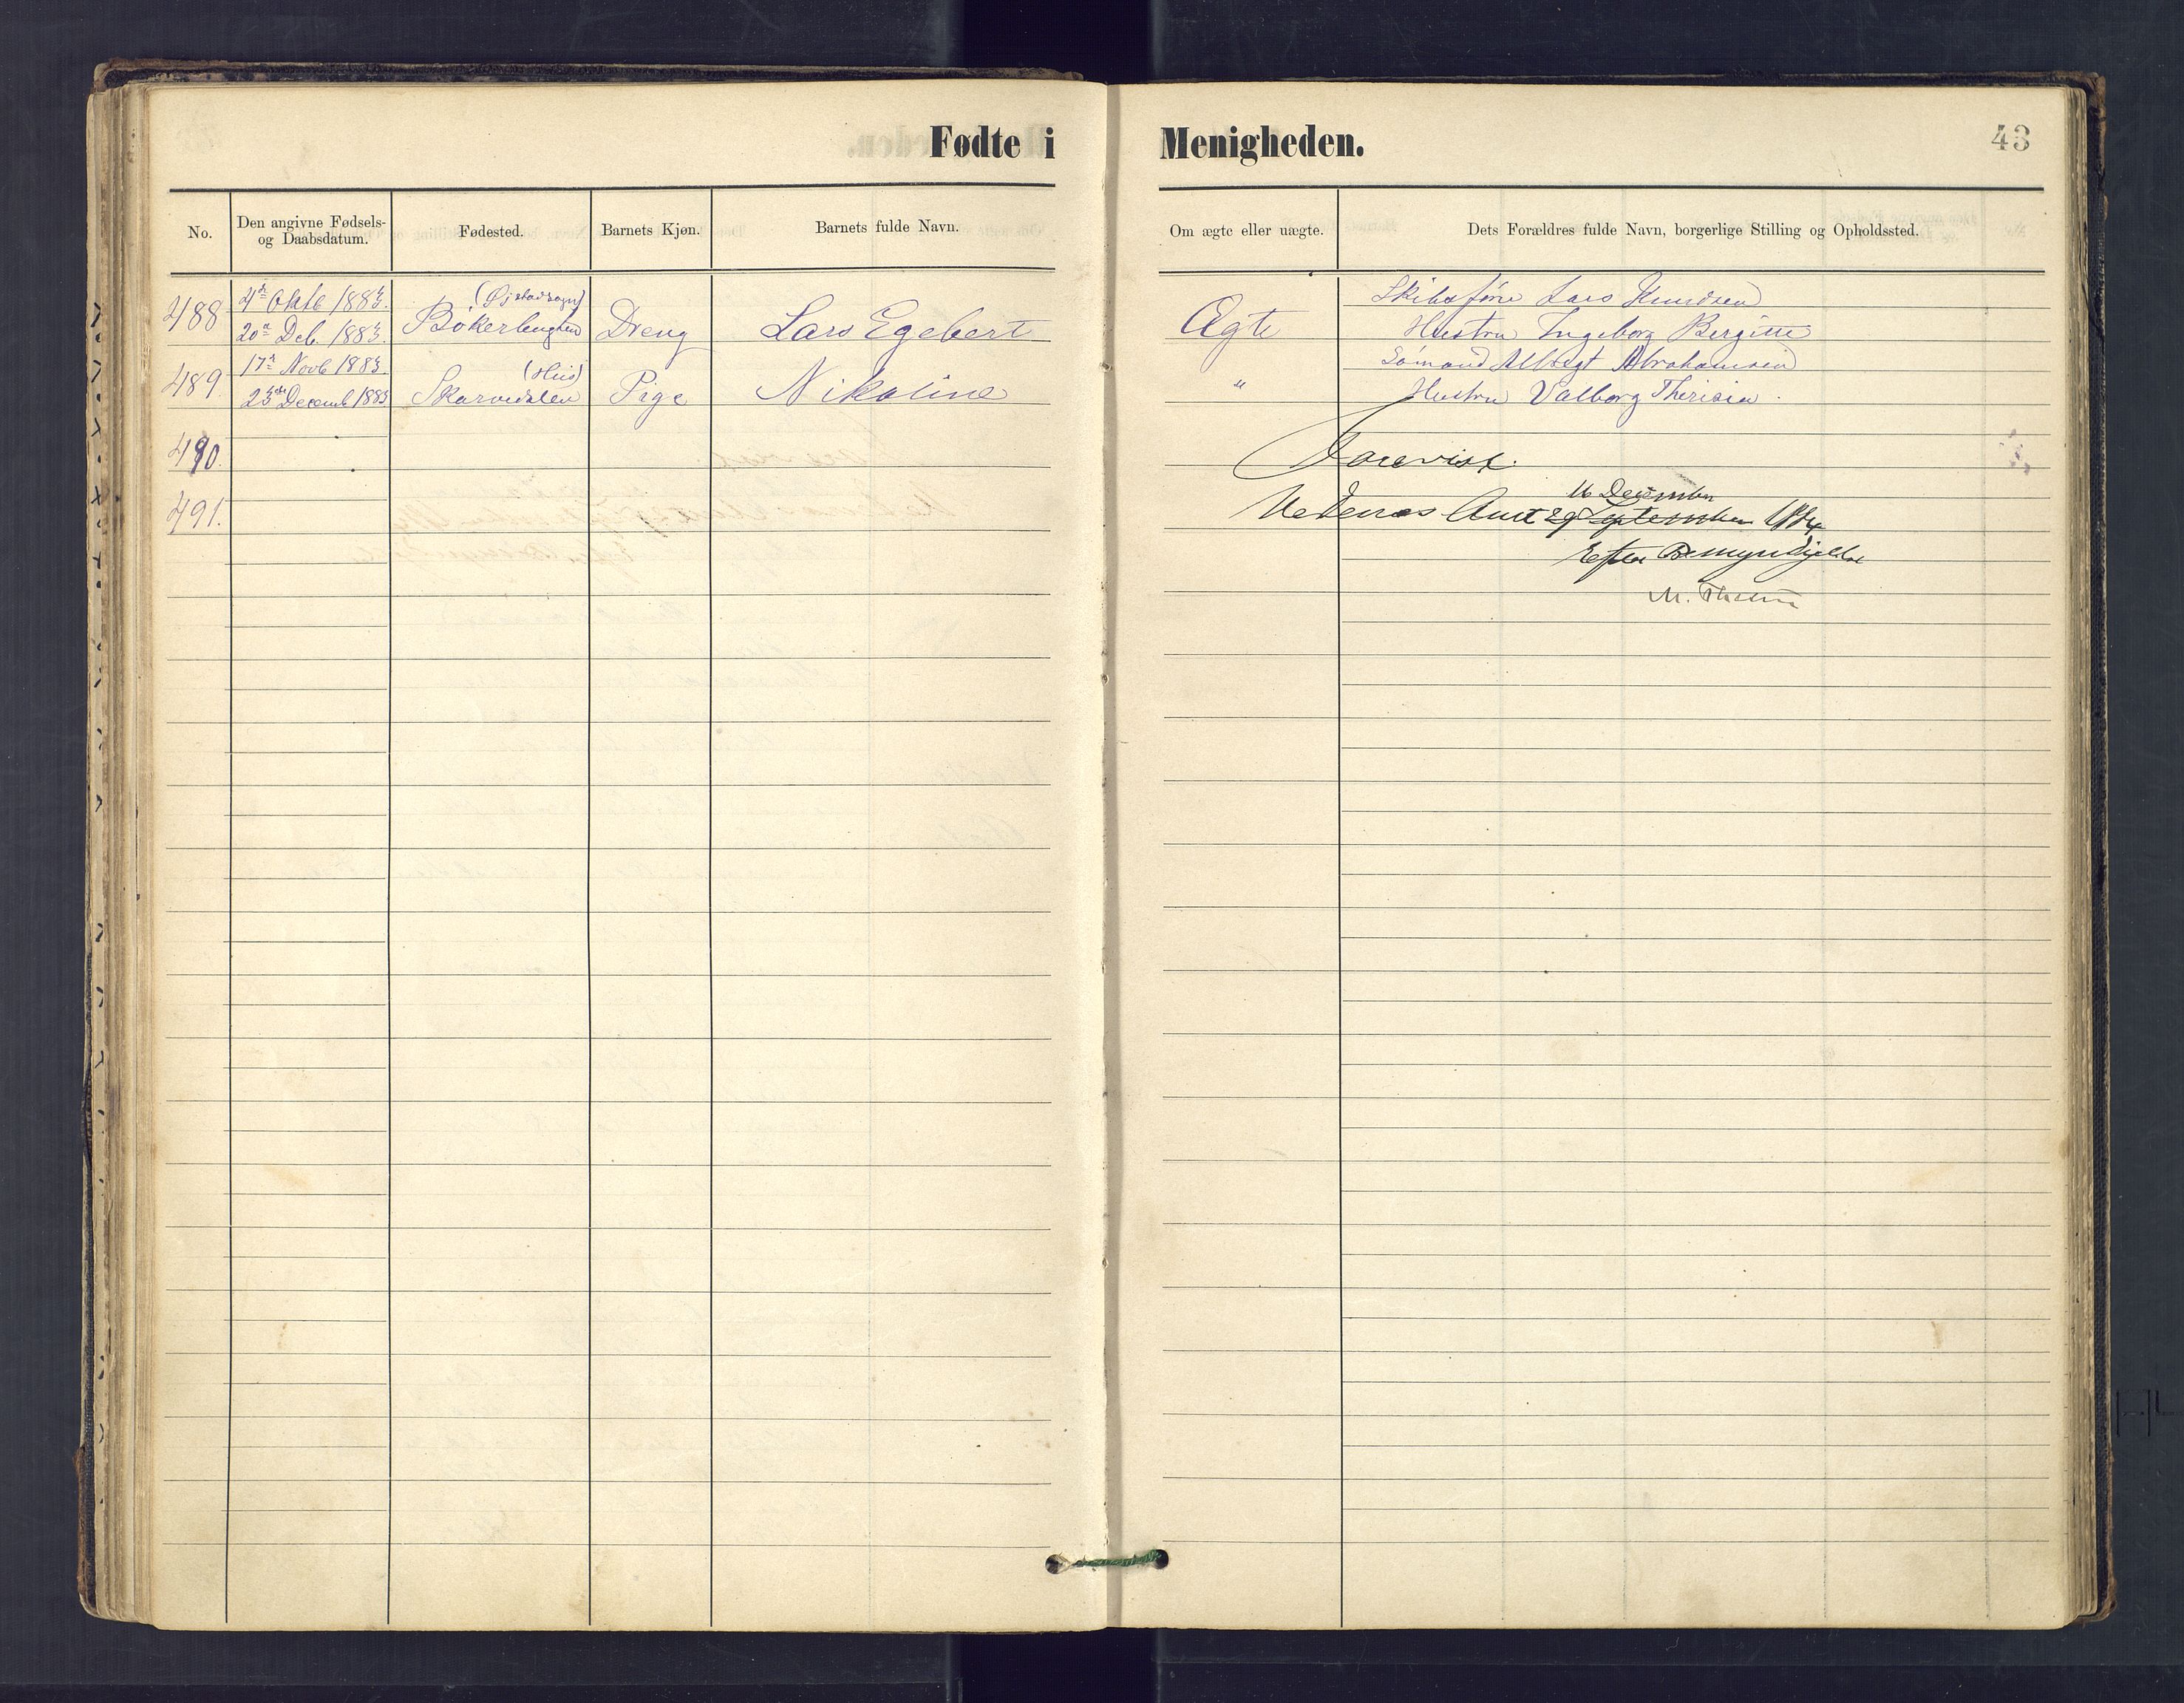 Fødte i Menigheden.
43
No.
Den angivne Fødsels- og Daabsdatum.
Fødested.
Barnets Kjøn.
Barnets fulde Navn.
Om ægte eller uægte.
Dets Forældres fulde Navn, borgerlige Stilling og Opholdssted.
488
4de Oktb 1883.
20de Deb. 1883.
(Øjestadsogn)
Dreng
Lars Egebert
Ægte
Skibsfører Lars Knudsen
Hustru Ingeborg Bergitte
489
17de Novb 1883
23de Decemb 1883
(Hiis)
Skarvedalen
Pige
Nikoline
"
Sømand Albregt Abrahamsen
Hustru Valborg Therisia.
490.
Forevist.
491.
16 December
Nedenæs Amt 29 September 1884
Efter Bemyndigelse